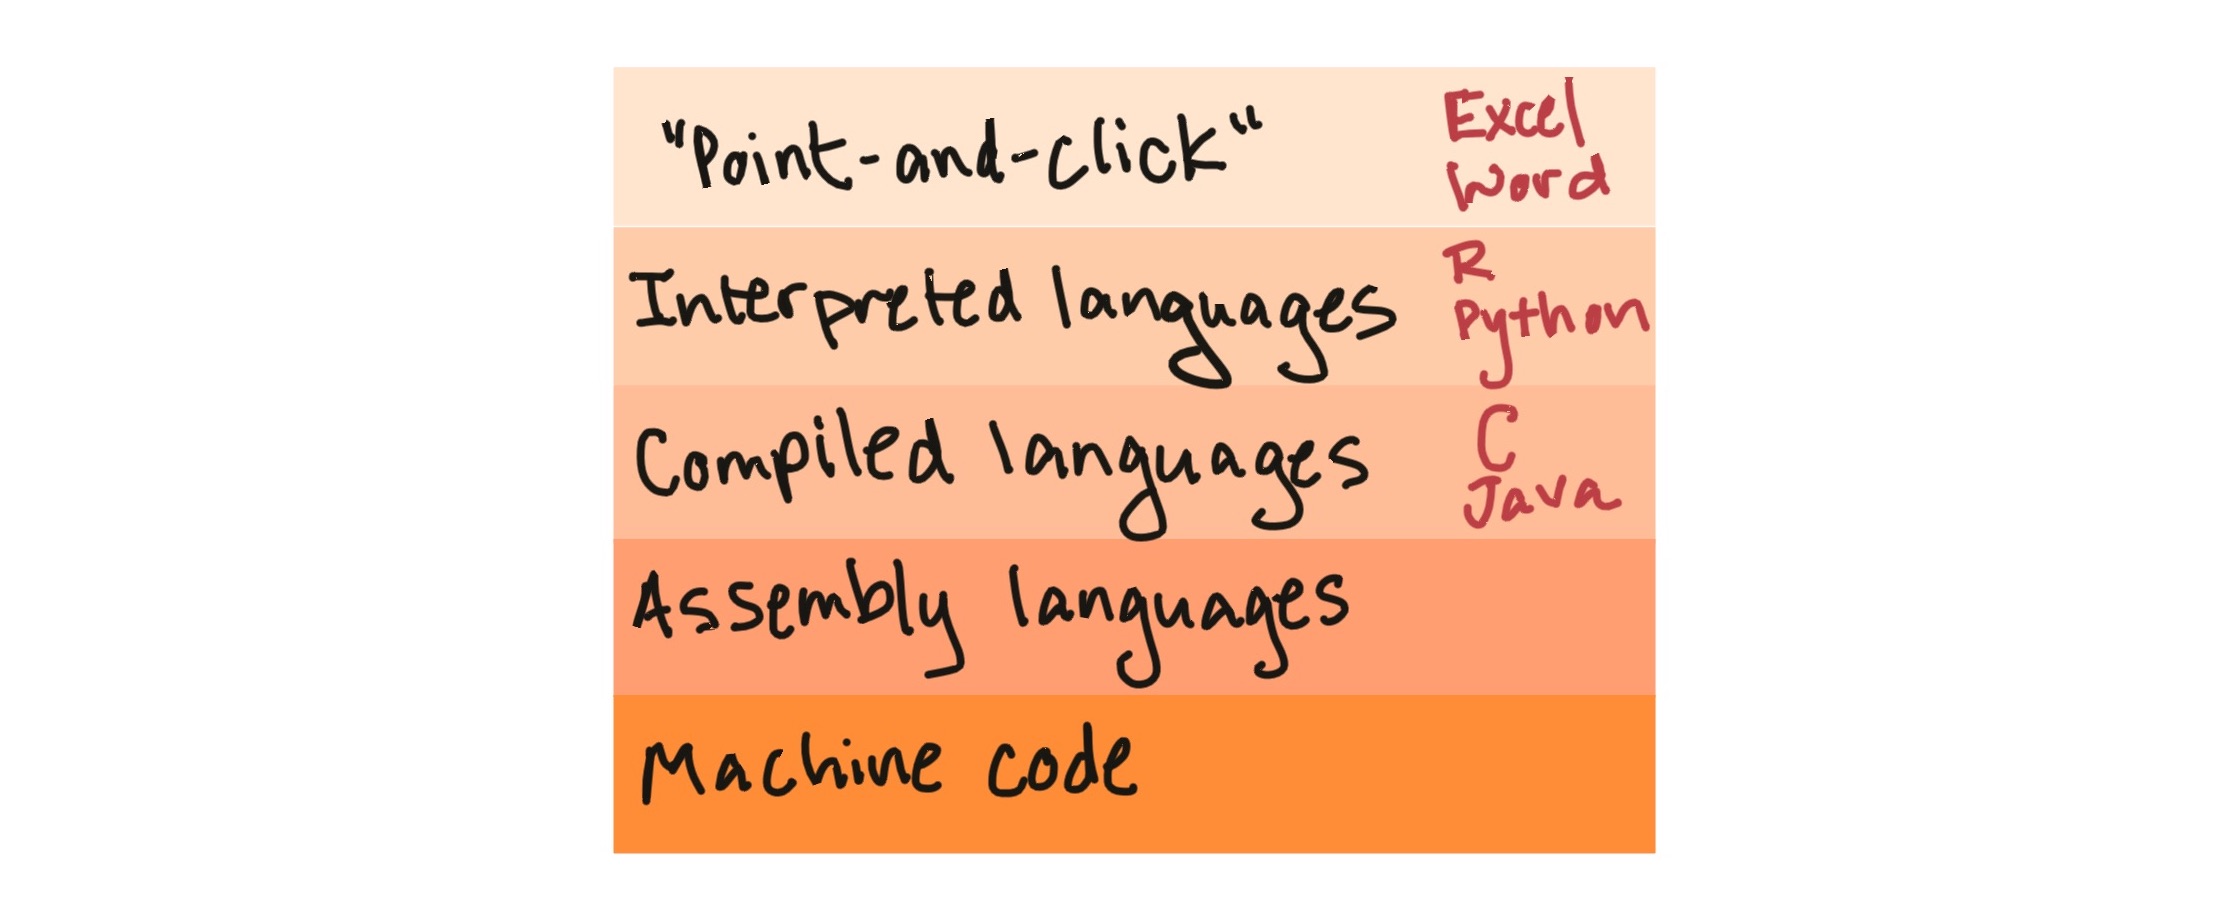 "Point-and-click"
Excel
Word
Interpreted languages
R
Python
Compiled languages
C
Java
Assembly languages
Machine code